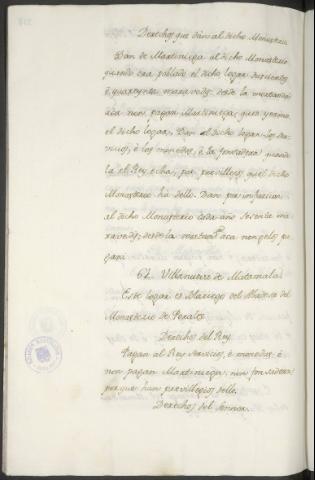 Derechos que dàn al dicho Monasterio
Dan de Martiniega al dicho Monasterio
quando era poblado el dicho logar
è quarenta maravedis, desde la mortandad
acà non pagan Martiniega, que es yermo
el dicho logar. Dan al dicho logar los ser-
vicios, è las monedas, è la fonsadera quando
la el Rey echa, por previllejos, que el dicho
Monasterio hà dello. Dan por infurcion
al dicho Monasterio cada año setenta ma-
ravedis, desde la mortandad acà non gelos pa-
gan.
Villanueva de Matamala.
Este logar es Abadengo del Abadesa del
Monasterio de Perales.
Derechos del Rey.
Pagan al Rey servicios, è monedas, è
non pagan Martiniega, nin fonsadera
porque han previllegios dello.
Derechos del Sennor.